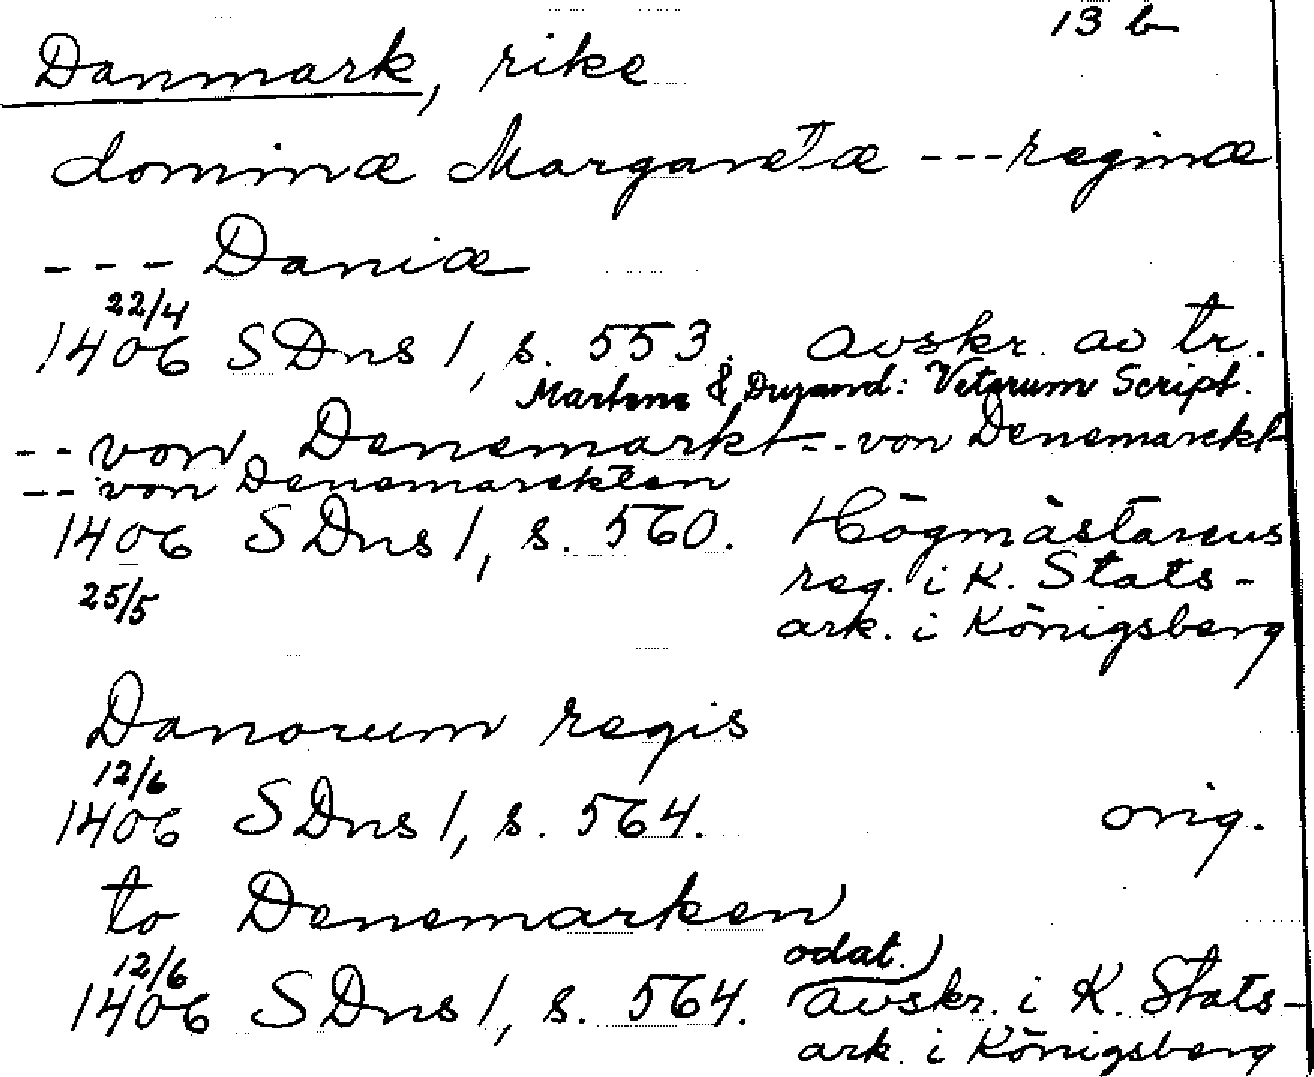 13 b
Danmark, rike
dominæ Margaretæ --- reginæ
--- Daniæ
22/4
1406 SDns 1, s. 553. avskr. av tr.
Martene & Durand: Veterum Script.
-- von Denemarkt -- von Denemarckt
-- von Denemarckten
1406 SDns 1, s. 560. Högmästareus
25/5 reg. i K. Stats-
ark. i Königsberg
Danorum regis
12/6
1406 SDns 1, s. 564. orig.
to Denemarken
12/6 odat.)
1406 SDns 1, s. 564. avskr. i K. Stats-
ark. i Königsberg